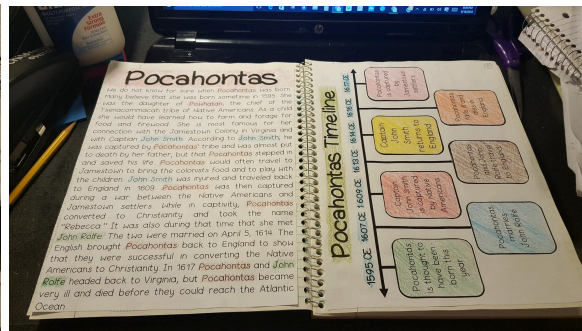 Extra
Strong
Formula
Pocahontas
We do not know for sure when Pocahontas was born,
many believe that she was born sometime in 1595. She
was the daughter of Powhatan, the chief of the
Tsenacommacah tribe of Native Americans. As a child
she would have learned how to farm and forage for
food and firewood. She is most famous for her
connection with the Jamestown Colony in Virginia and
with Captain John Smith. According to John Smith, he
was captured by Pocahontas' tribe and was almost put
to death by her father, but that Pocahontas stepped in
and saved his life. Pocahontas would often travel to
Jamestown to bring the colonists food and to play with
the children. John Smith was injured and traveled back
to England in 1609. Pocahontas was then captured
during a war between the Native Americans and
Jamestown settlers while in captivity, Pocahontas
converted to Christianity and took the name
"Rebecca." It was also during that time that she met
John Rolfe. The two were married on April 5, 1614. The
English brought Pocahontas back to England to show
that they were successful in converting the Native
Americans to Christianity. In 1617 Pocahontas and John
Rolfe headed back to Virginia, but Pocahontas became
very ill and died before they could reach the Atlantic
Ocean
Pocahontas Timeline
1595 CE 1607 CE 1609 CE 1613 CE 1614 CE 1616 CE 1617 CE
Pocahontas
is thought to
have been
born this
year
Captain
John Smith
is captured
by Native
Americans
Captain
John
Smith
returns to
England
Pocahontas
is captured
by
Jamestown
settlers
Pocahontas
marries
John Rolfe
Pocahontas
England
Pocahontas
England